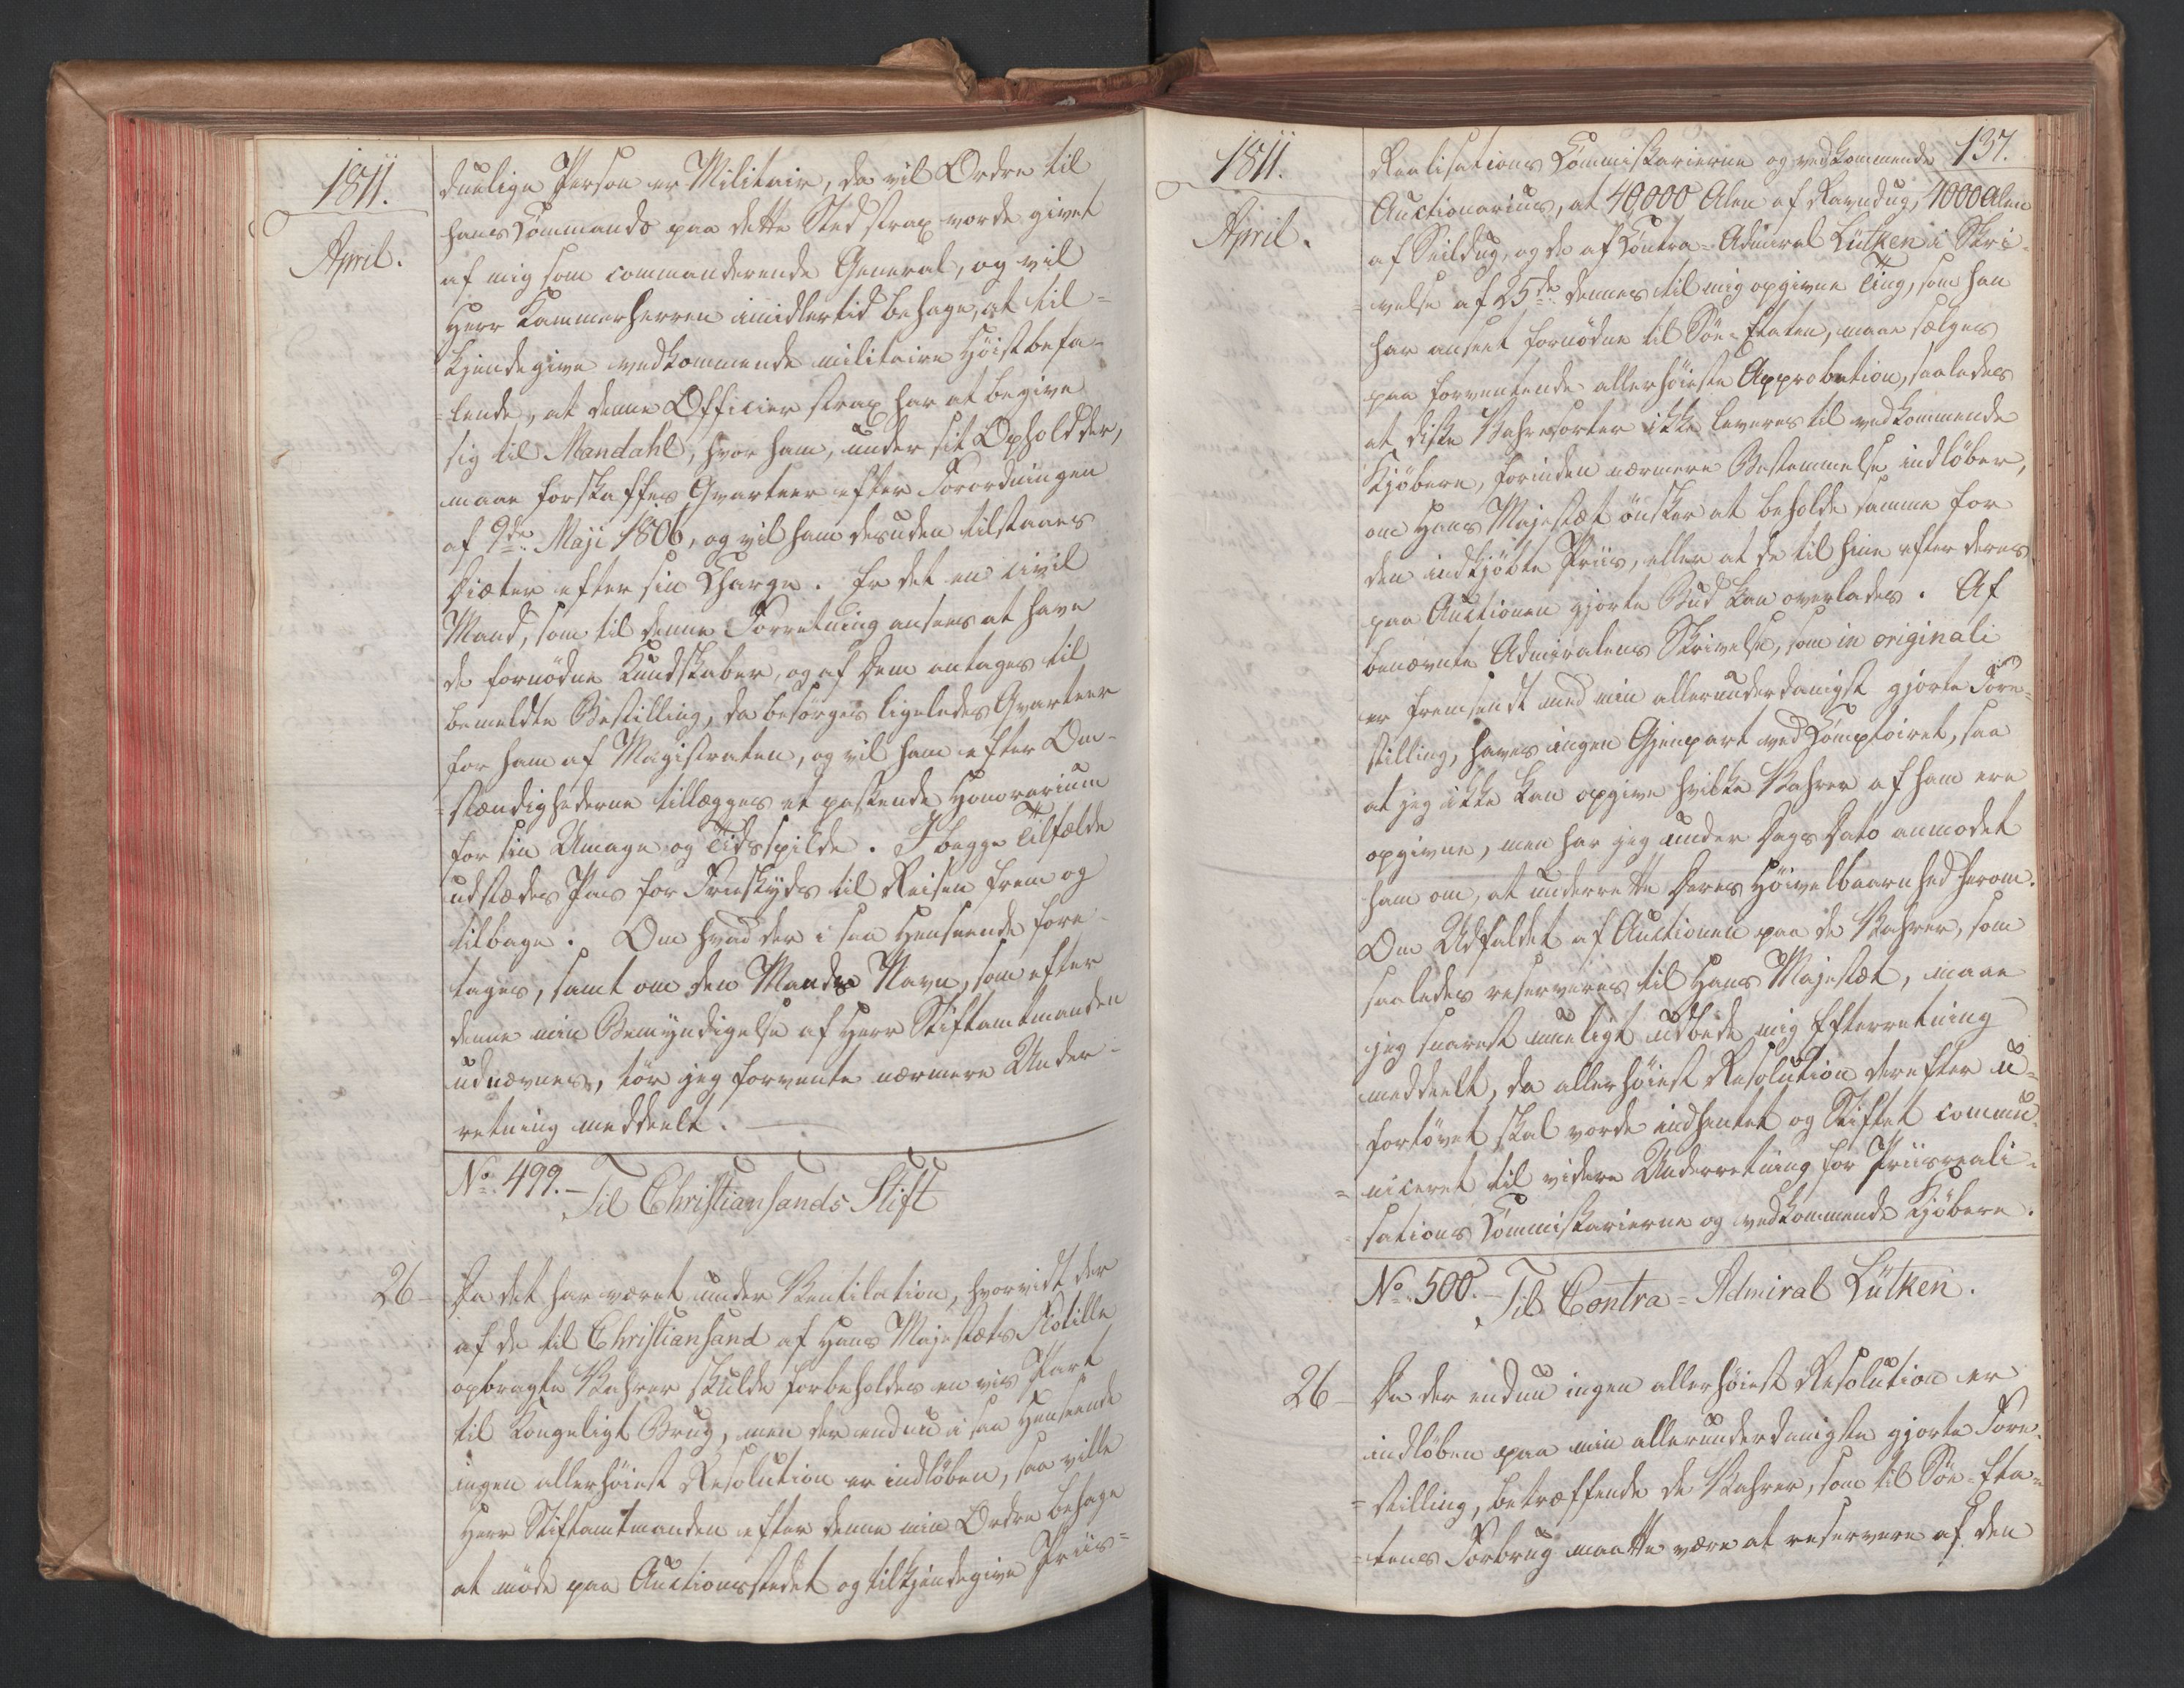 1811.
April.
duelige Person er Militair, da vil Ordre til
hans Kommando paa dette Sted strax vorde givet
af mig som commanderende General, og vil
Herr Kammerherren imidlertid behage, at til-
kjendegive vedkommende militaire Høistbefa-
=lende, at denne Officier strax har at begive
sig til Mandahl, hvor ham, under sit Ophold der,
maae forskaffes Qvarteer efter Forordningen
af 9de Maji 1806, og vil ham desuden tilstaaes
Diæter efter sin Charge. Er det en civil
Mand, som til denne Forretning ansees at have
de fornødne Kundskaber, og af Dem antages til
bemeldte Bestilling, da besørges ligeledes Qvarteer
for ham af Magistraten, og vil ham efter Om-
=stændighederne tillægges et passende Honorarium
for sin Umage og Tidsspilde. I begge Tilfælde
udstædes Pas for Friskyds til Reisen frem og
tilbage. Om hvad der i saa Henseende fore-
tages, samt om den Mands Navn, som efter
denne min Bemyndigelse af Herr Stiftamtmanden
udnævnes, tør jeg forvente nærmere Under-
retning meddeelt.
No. 499. Til Christiansands Stift
26 Da det har været under Ventilation, hvorvidt der
af de til Christiansand af Hans Majestæts Flotille
opbragte Vahrer skulde forbeholdes en vis Part
til Kongeligt Brug, men der endnu i saa Henseende
ingen allerhøiest Resolution er indløben, saa ville
Herr Stiftamtmanden efter denne min Ordre behage
at møde paa Auctionsstedet og tilkjendegive Priis-
137.
1811.
April.
Realisations Kommissarierne og vedkommende
Auctionarius, at 40,000 Alen af Ravndug, 4000 Alen
af Seildug, og de af Kontra-Admiral Lütken i Skri-
=velse af 25de dennes til mig opgivne Ting, som han
har anseet fornødne til Søe-Etaten, maae sælges
paa forventende allerhøieste Approbation, saaledes
at disse Vahresorter ikke leveres til vedkommende
Kjøbere, forinden nærmere Bestemmelse indløber,
om Hans Majestæt ønsker at beholde samme for
den indkjøbte Priis, eller at de til hine efter deres
paa Auctionen gjorte Bud kan overlades. Af
benævnte Admiralens Skrivelse, som in originali
er fremsendt med min allerunderdanigst gjorte Fore-
stilling, haves ingen Gjenpart ved Komptoiret, saa
at jeg ikke kan opgive hvilke Vahrer af ham ere
opgivne, men har jeg under Dags Dato anmodet
ham om, at underrette Deres Høivelbaarnhed herom.
Om Udfaldet af Auctionen paa de Vahrer, som
saaledes reserveres til Hans Majestæt, maae
jeg snarest mueligt udbede mig Efterretning
meddeelt, da allerhøiest Resolution derefter u-
fortøvet skal vorde indhentet og Stiftet commu-
=niceret til videre Underretning for Priisreali-
=sations Kommissarierne og vedkommende Kjøbere.
No. 500. Til Contra-Admiral Lütken.
26 Da der endnu ingen allerhøiest Resolution er
indløben paa min allerunderdanigste gjorte Fore-
=stilling, betræffende de Vahrer, som til Søe-Eta-
=tens Forbrug maatte være at reservere af den